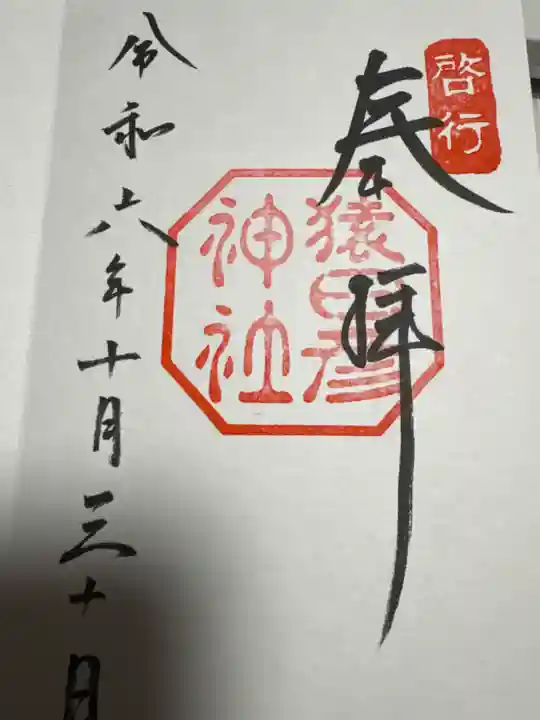 啓行
奉拝
猿田彦
神社
令和六年十月三十日